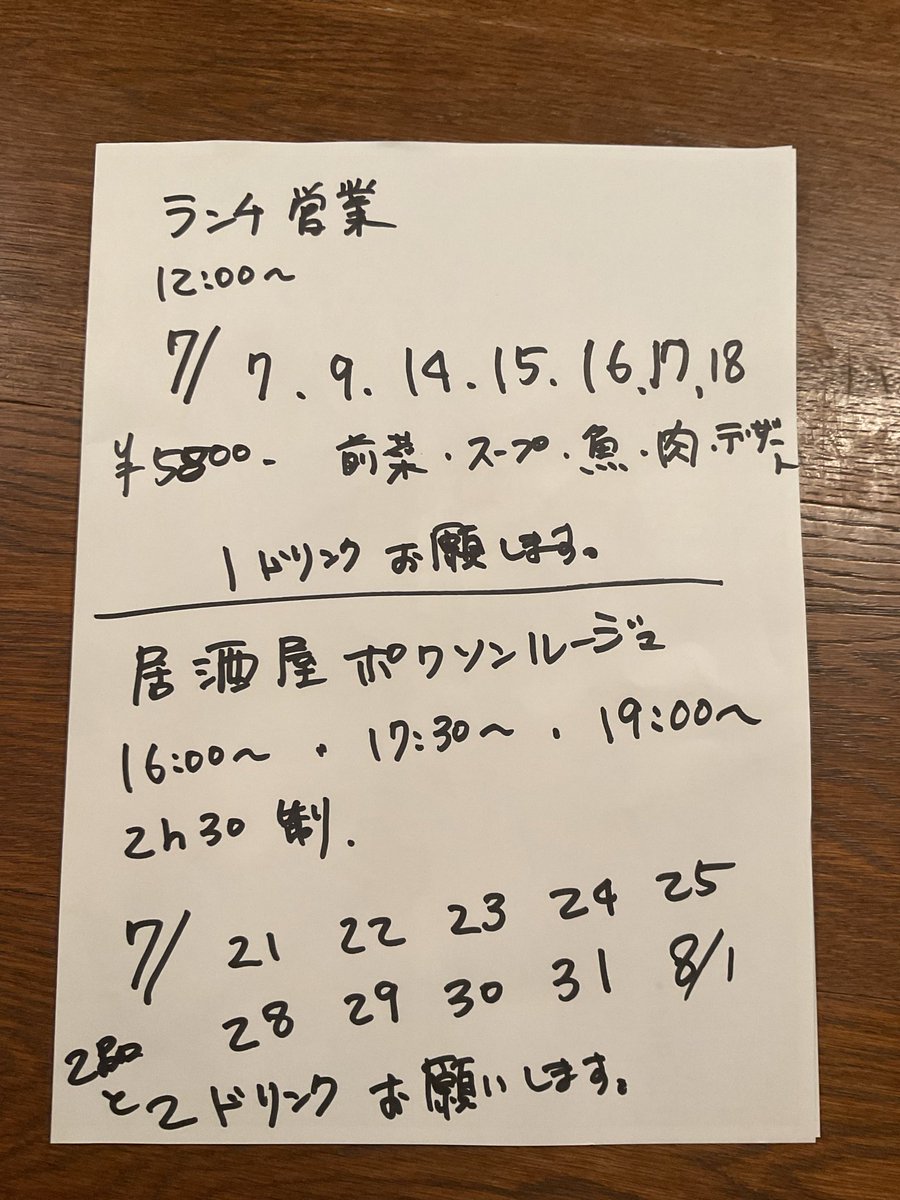 ランチ営業
12:00〜
7/ 7. 9. 14. 15. 16, 17, 18
¥5800- 前菜・スープ・魚・肉・デザート
1ドリンクお願します。
居酒屋ポワソンルージュ
16:00〜 . 17:30〜 . 19:00〜
2h30制.
7/ 21 22 23 24 25
28 29 30 31 8/1
2品
と2ドリンクお願いします。